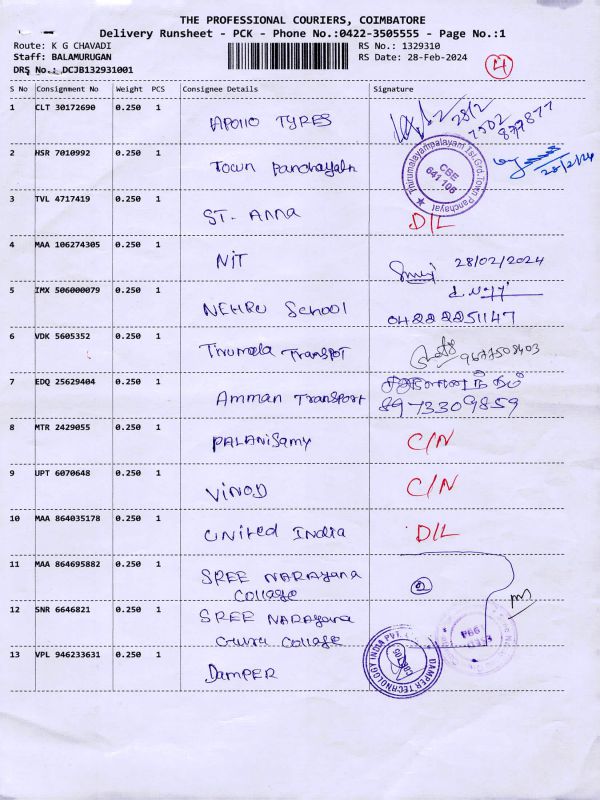 THE PROFESSIONAL COURIERS, COIMBATORE
Delivery Runsheet - PCK - Phone No.:0422-3505555 - Page No.:1
Route: K G CHAVADI RS No.: 1329310
Staff: BALAMURUGAN RS Date: 28-Feb-2024
DRS No.: DCJB132931001 4
S No Consignment No Weight PCS Consignee Details Signature
1 CLT 30172690 0.250 1 APOLLO TYRES 28/2
7502 877877
2 HSR 7010992 0.250 1 Town Panchayath 28/2/24
Thirumalayampalayam 1st.Grd.Town Panchayat
CBE
641 105
3 TVL 4717419 0.250 1 ST. Anna D/L
4 MAA 106274305 0.250 1 NIT 28/02/2024
5 IMX 506000079 0.250 1 NEHRU School 0422 2251147
6 VDK 5605352 0.250 1 Thumala Transpot 9677508403
7 EDQ 25629404 0.250 1 Amman Transport
8973309859
8 MTR 2429055 0.250 1 PALANISamy C/N
9 UPT 6070648 0.250 1 VINOD C/N
10 MAA 864035178 0.250 1 United India D/L
11 MAA 864695882 0.250 1 SREE NARAYANA
Collage 2
12 SNR 6646821 0.250 1 SREE NARAYANA
Guru Collage
13 VPL 946233631 0.250 1 DAMPER
DAMPER TECHNOLOGY INDIA PVT.